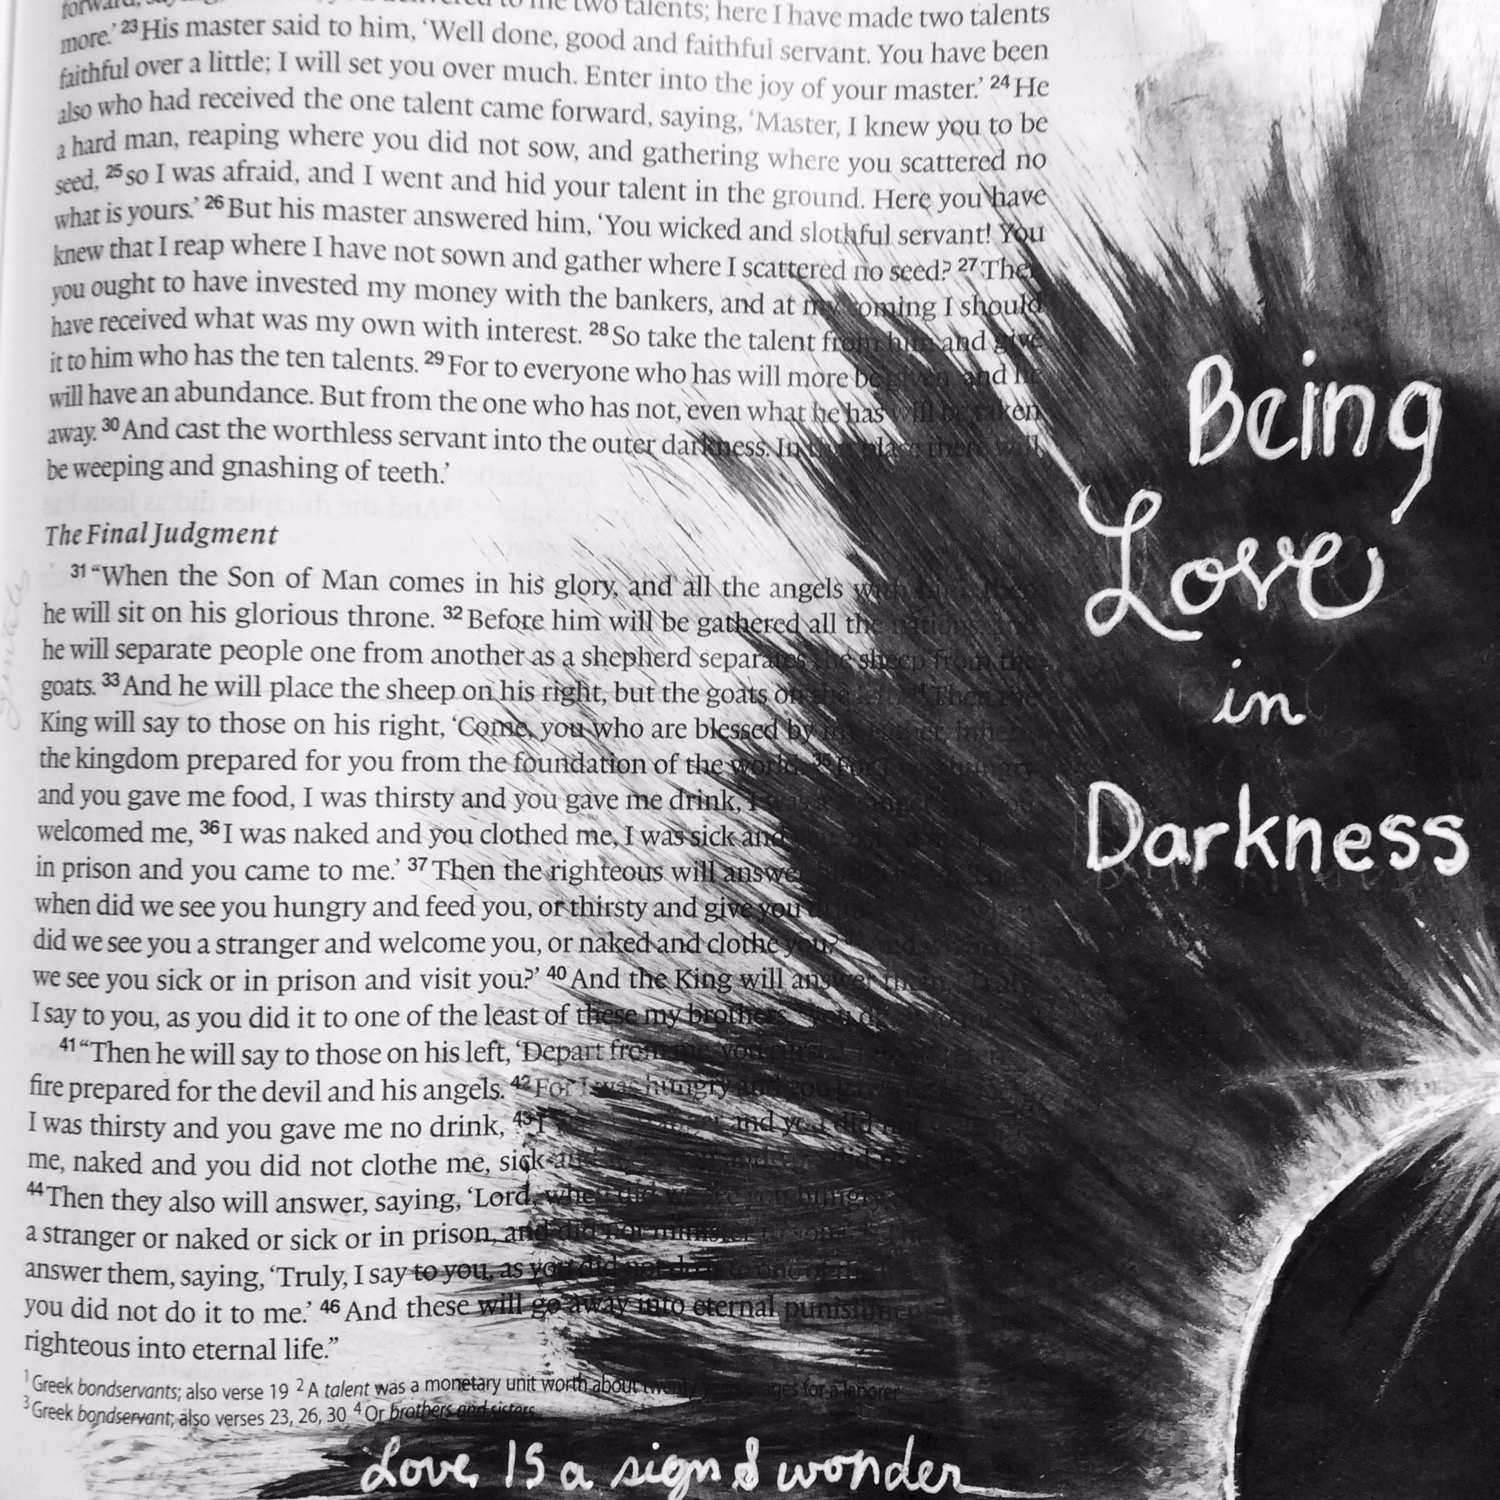 forward, saying, delivered to me two talents; here I have made two talents
more.’ 23 His master said to him, ‘Well done, good and faithful servant. You have been
faithful over a little; I will set you over much. Enter into the joy of your master.’ 24 He
also who had received the one talent came forward, saying, ‘Master, I knew you to be
a hard man, reaping where you did not sow, and gathering where you scattered no
seed, 25 so I was afraid, and I went and hid your talent in the ground. Here you have
what is yours.’ 26 But his master answered him, ‘You wicked and slothful servant! You
knew that I reap where I have not sown and gather where I scattered no seed? 27 Then
you ought to have invested my money with the bankers, and at my coming I should
have received what was my own with interest. 28 So take the talent from him and give
it to him who has the ten talents. 29 For to everyone who has will more be given, and he
will have an abundance. But from the one who has not, even what he has will be taken
away. 30 And cast the worthless servant into the outer darkness. In that place there will
be weeping and gnashing of teeth.’
The Final Judgment
31 “When the Son of Man comes in his glory, and all the angels with him, then
he will sit on his glorious throne. 32 Before him will be gathered all the nations, and
he will separate people one from another as a shepherd separates the sheep from the
goats. 33 And he will place the sheep on his right, but the goats on the left. Then the
King will say to those on his right, ‘Come, you who are blessed by my Father, inherit
the kingdom prepared for you from the foundation of the world. 35 For I was hungry
and you gave me food, I was thirsty and you gave me drink, I was a stranger
welcomed me, 36 I was naked and you clothed me, I was sick and
in prison and you came to me.’ 37 Then the righteous will answer
when did we see you hungry and feed you, or thirsty and give you
did we see you a stranger and welcome you, or naked and clothe you?
we see you sick or in prison and visit you?’ 40 And the King will answer them, ‘Truly,
I say to you, as you did it to one of the least of these my brothers, you did
41 “Then he will say to those on his left, ‘Depart from me, you
fire prepared for the devil and his angels. 42 For I was hungry and you
I was thirsty and you gave me no drink, 43 I and you did not
me, naked and you did not clothe me, sick and
44 Then they also will answer, saying, ‘Lord, when did we see you hungry
a stranger or naked or sick or in prison, and did not minister to you?’
answer them, saying, ‘Truly, I say to you, as you did not do it to one of
you did not do it to me.’ 46 And these will go away into eternal punishment
righteous into eternal life.”
1 Greek bondservants; also verse 19 2 A talent was a monetary unit worth about twenty years’ wages for a laborer
3 Greek bondservant; also verses 23, 26, 30 4 Or brothers and sisters
Being
Love
in
Darkness
Love is a sign & wonder